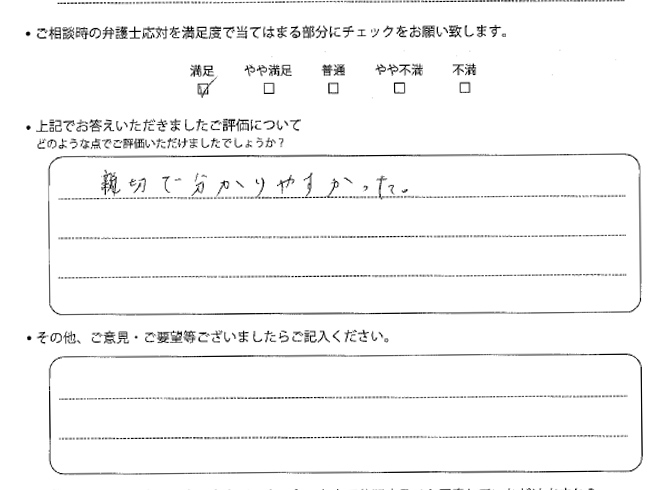 • ご相談時の弁護士応対を満足度で当てはまる部分にチェックをお願い致します。
満足 やや満足 普通 やや不満 不満
☑ □ □ □ □
• 上記でお答えいただきましたご評価について
どのような点でご評価いただけましたでしょうか？
親切で分かりやすかった。
• その他、ご意見・ご要望等ございましたらご記入ください。